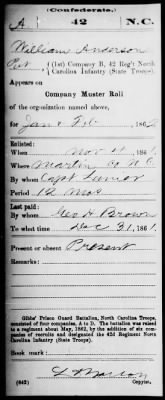 (Confederate.)
A 42 N.C.
William Anderson
Pvt, (1st) Company B, 42 Reg't North
Carolina Infantry (State Troops).
Appears on
Company Muster Roll
of the organization named above,
for Jan & Feb, 1862
Enlisted:
When Nov 4, 1861
Where Martin Co N.C.
By whom Capt Lanier
Period 12 Mos
Last paid:
By whom Geo H Brown
To what time Dec 31, 1861
Present or absent Present
Remarks:
Gibbs' Prison Guard Battalion, North Carolina Troops,
consisted of four companies, A to D. The battalion was raised
to a regiment about May, 1862, by the addition of six compa-
nies of recruits and designated the 42d Regiment North
Carolina Infantry (State Troops).
Book mark:
(642) Copyist.